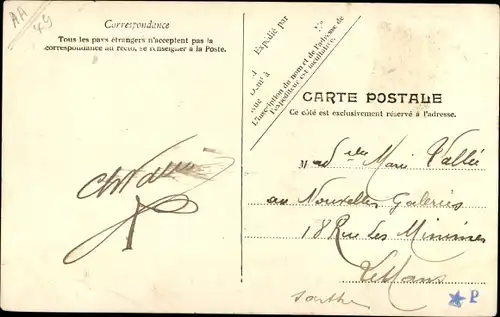 AA
49
Correspondance
Tous les pays étrangers n'acceptent pas la
correspondance au recto, se renseigner à la Poste.
Expédié par
Dem' à
Rue
N°
L'inscription du nom et de l'adresse de
l'expéditeur est facultative.
CARTE POSTALE
Ce côté est exclusivement réservé à l'adresse.
M ad elle Marie Vallée
au Nouvelles Galeries
18 Rue des Minimes
Le Mans
Sarthe
P